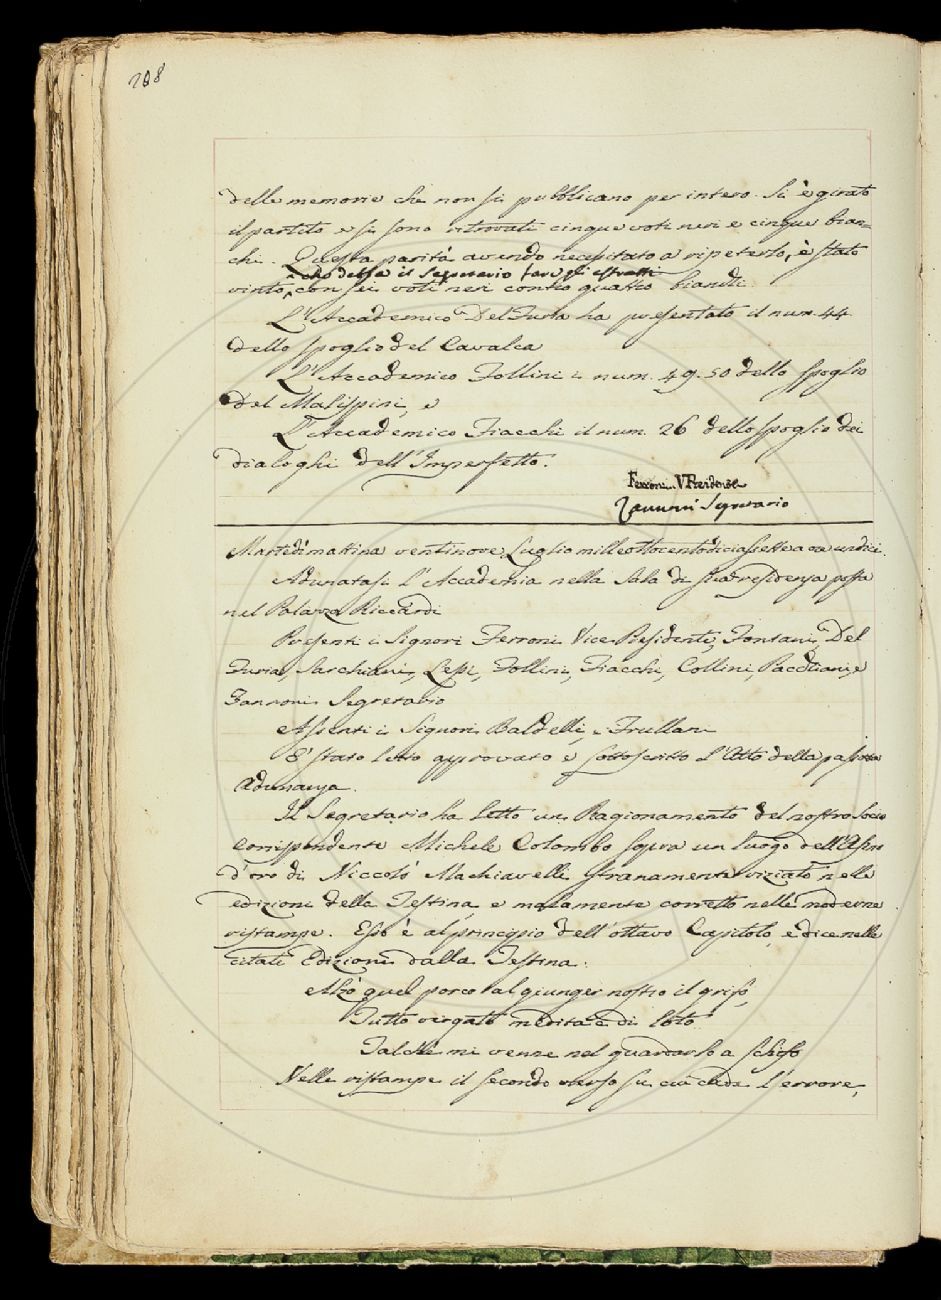 208
delle memorie che non si pubblicano per intero. Si è girato
il partito e si sono ritrovati cinque voti neri e cinque bian=
chi. Questa parità avendo necessitato a ripeterlo, è stato
che debba il Segretario fare gli estratti
vinto, con sei voti neri contro quattro bianchi.
L'Accademico Del Furia ha presentato il num. 44
dello spoglio del Cavalca
L'Accademico Follini i num. 49. 50 dello spoglio
del Malispini, e
L'Accademico Fiacchi il num. 26 dello spoglio dei
dialoghi dell'Imperfetto.
Ferroni V. Presidente
Zannoni Segretario
Martedì mattina ventinove Luglio milleottocentodiciassette a ora undici.
Adunatasi l'Accademia nella Sala di sua residenza posta
nel Palazzo Riccardi
Presenti i Signori Ferroni Vice-Presidente, Fontani, Del
Furia, Sarchiani, Lessi, Follini, Fiacchi, Collini, Pacchiani, e
Zannoni Segretario
Assenti i Signori Baldelli, e Frullani
È stato letto approvato e sottoscritto l'Atto della passata
Adunanza.
Il Segretario ha letto un Ragionamento del nostro Socio
Corrispondente Michele Colombo sopra un luogo dell'Asino
d'oro di Niccolò Machiavelli stranamente viziato nelle
edizioni della Testina, e malamente corretto nelle moderne
ristampe. Esso è al principio dell'ottavo Capitolo, e dice nelle
citate Edizioni dalla Testina:
Alzò quel porco al giunger nostro il grifo,
Tutto vergato merita e di loto
Talchè mi venne nel guardarlo a schifo
Nelle ristampe il secondo verso su cui cade l'errore,